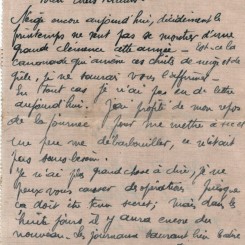 Neige encore aujourd'hui, décidément le
printemps ne veut pas se montrer d'une
grande clémence cette année - Est-ce la
canonnade qui amène ces chutes de neige et de
grêle, je ne saurai vous l'affirmer -
En tout cas je n'ai pas eu de lettre
aujourd'hui. J'ai profité de mon repos
de la journée pour me mettre à sec et
un peu me débarbouiller, ce n'était
pas sans besoin.
Je n'ai pas grand chose à dire, je ne
peux vous causer des opérations puisque
ça doit être tenu secret; mais dans le
huit jours il y aura encore du
nouveau - les journaux sauront bien